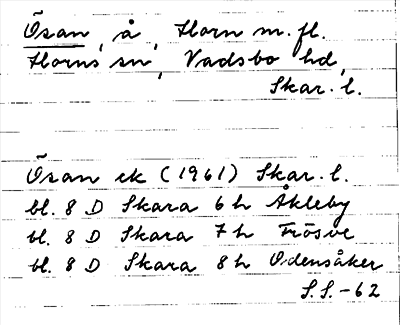 Ösan, å, Horn m.fl.
Horns sn, Vadsbo hd,
Skar. l.
Ösan ek (1961) Skar. l.
bl. 8 D Skara 6 h Åkleby
bl. 8 D Skara 7 h Frösve
bl. 8 D Skara 8 h Odensåker
S.S.-62